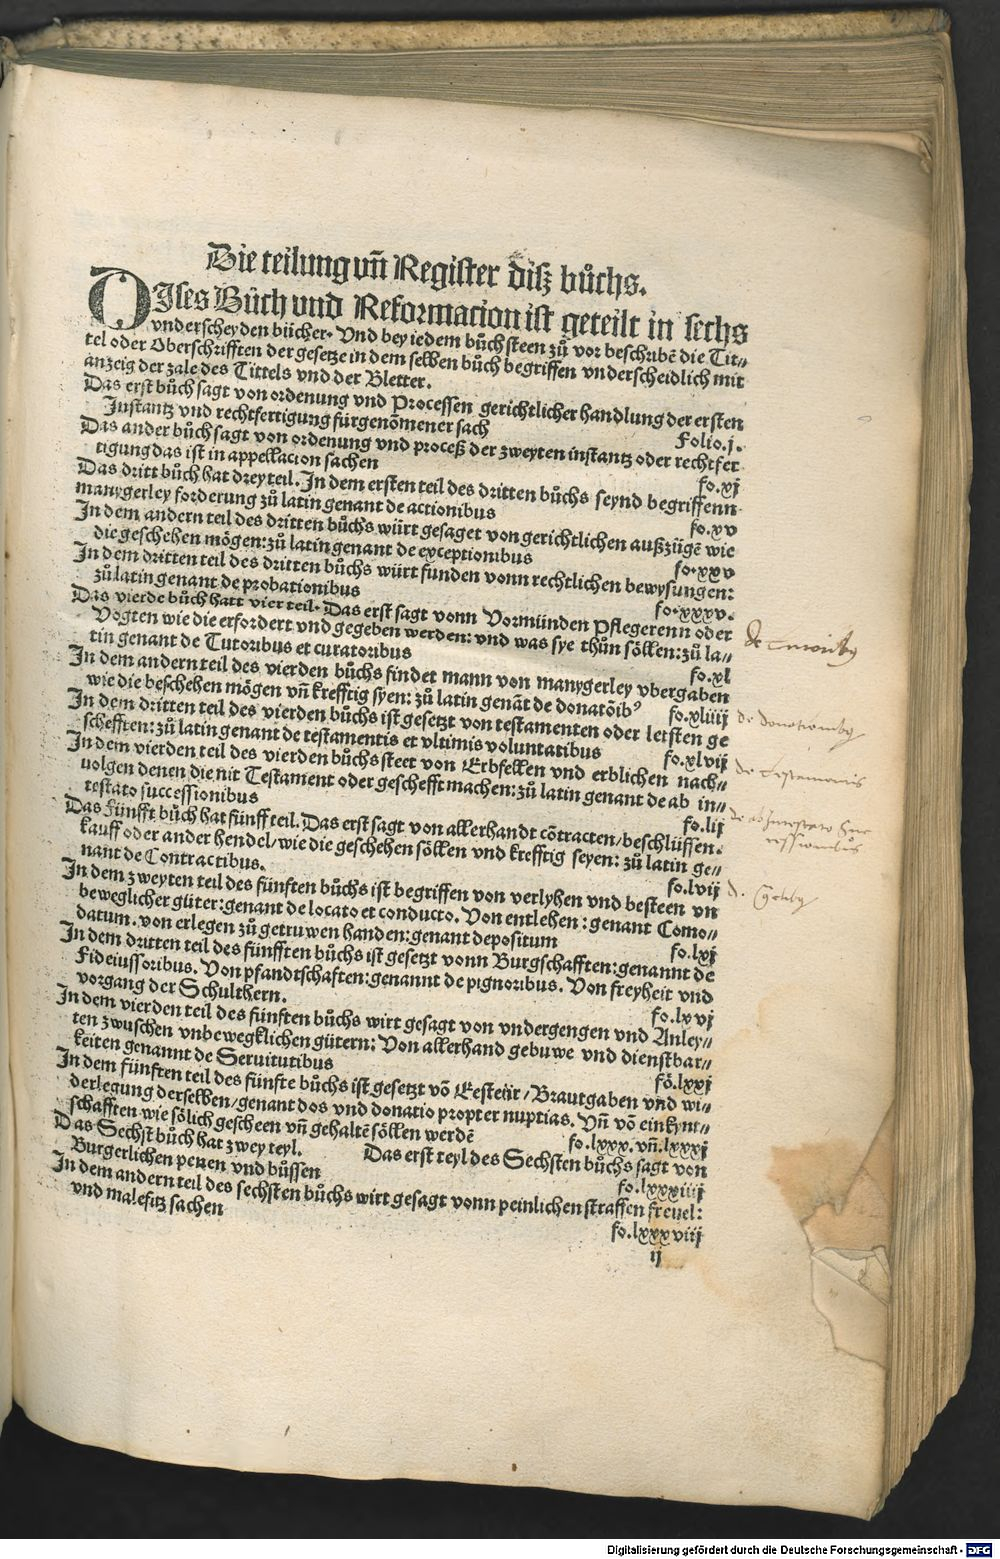 Die teilung vñ Register diſz bůchs.
DIses Bůch vnd Reformacion ist geteilt in sechs
vnderscheyden bücher. Vnd bey iedem bůch steen zů vor beschribē die Tit⸗
tel oder Vberschrifften der gesetze in dem selben bůch begriffen vnderscheidlich mit
anzeig der zale des Tittels vnd der Bletter.
Das erst bůch sagt von ordenung vnd Processen gerichtlicher handlung der ersten
Instantz vnd rechtfertigung fürgenōmener sach Folio.j.
Das ander bůch sagt von ordenung vnd proceß der zweyten instantz oder rechtfer
tigung das ist in appellacion sachen fo.xj
Das dritt bůch hat drey teil. In dem ersten teil des dritten bůchs seynd begriffenn
manygerley forderung zů latin genant de actionibus fo.xv
In dem andern teil des dritten bůchs würt gesaget von gerichtlichen außzügē wie
die geschehen mögen: zů latin genant de exceptionibus fo.xxv
In dem dritten teil des dritten bůchs würt funden vonn rechtlichen bewysungen:
zů latin genant de probationibus fo.xxxv.
Das vierde bůch hatt vier teil. Das erst sagt vonn Vormünden Pflegerenn oder
Vögten wie die erfordert vnd gegeben werden: vnd was sye thůn söllen: zů la⸗
tin genant de Tutoribus et curatoribus fo.xl
In dem andern teil des vierden bůchs findet mann von manygerley vbergaben
wie die beschehen mögen vñ krefftig syen: zů latin genāt de donatōibꝰ fo.xliiij
In dem dritten teil des vierden bůchs ist gesetzt von testamenten oder letsten ge
schefften: zů latin genant de testamentis et vltimis voluntatibus fo.xlvij
In dem vierden teil des vierden bůchs steet von Erbfellen vnd erblichen nach⸗
uolgen denen die nit Testament oder geschefft machen: zů latin genant de ab in⸗
testato successionibus fo.lij
Das Fünfft bůch hat fünff teil. Das erst sagt von allerhandt cōtracten/beschlüssen.
kauff oder ander hendel/wie die geschehen söllen vnd krefftig seyen: zů latin ge⸗
nant de Contractibus. fo.lvij
In dem zweyten teil des fünften bůchs ist begriffen von verlyhen vnd besteen vn
beweglicher güter: genant de locato et conducto. Von entlehen: genant Como⸗
datum. von erlegen zů getruwen handen: genant depositum fo.lxj
In dem dritten teil des fünfften bůchs ist gesetzt vonn Burgschafften: genannt de
Fideiussoribus. Von pfandtschaften: genannt de pignoribus. Von freyheit vnd
vorgang der Schulthern. fo.lxvj
In dem vierden teil des fünften bůchs wirt gesagt von vndergengen vnd Anley⸗
ten zwuschen vnbewegklichen gütern: Von allerhand gebuwe vnd dienstbar⸗
keiten genannt de Seruitutibus fō.lxxj
In dem fünften teil des fünfte bůchs ist gesetzt vō Eesteür/Brautgaben vnd wi⸗
derlegung derselben/genant dos vnd donatio propter nuptias. Vñ vō einkynt⸗
schafften wie sölich gescheen vñ gehaltē söllen werdē fo.lxxx.vñ.lxxxj
Das Sechst bůch hat zwey teyl. Das erst teyl des Sechsten bůchs sagt von
Burgerlichen penen vnd büssen fo.lxxxiiij
In dem andern teil des sechsten bůchs wirt gesagt vonn peinlichen straffen freuel:
vnd malefitz sachen fo.lxxxviij
ij
de donationibꝰ
de testamentis
de ab intestato suc
cessionibus
Digitalisierung gefördert durch die Deutsche Forschungsgemeinschaft - DFG